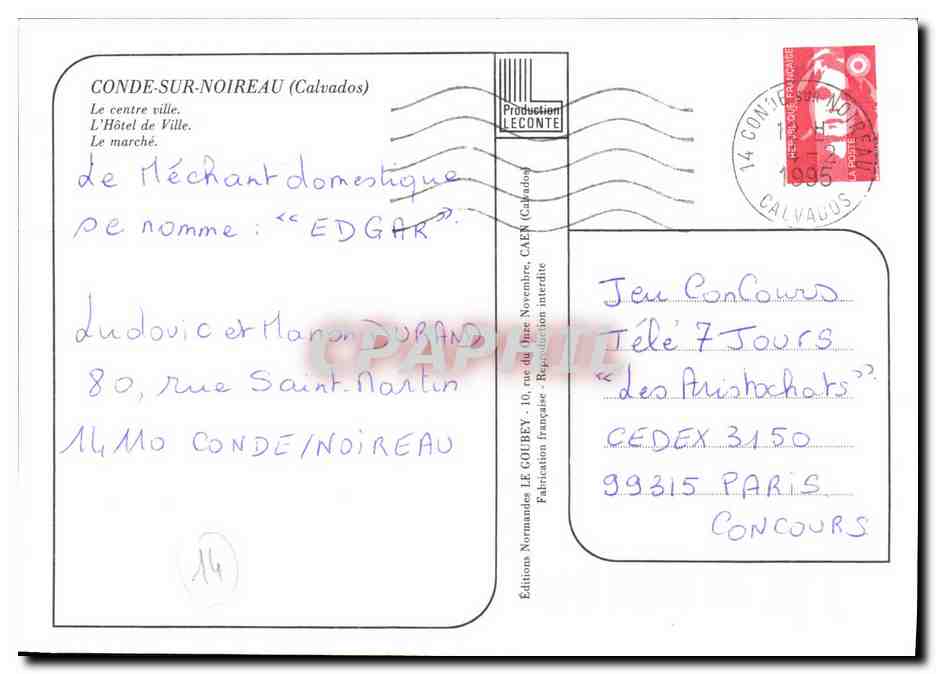 CONDE-SUR-NOIREAU (Calvados)
Le centre ville.
L'Hôtel de Ville.
Le marché.
Le Méchant domestique
se nomme : "EDGAR".
Ludovic et Manon DURAND
80, rue Saint-Martin
14110 CONDE/NOIREAU
14
Production
LECONTE
Éditions Normandes LE GOUBEY - 10, rue du Onze Novembre, CAEN (Calvados)
Fabrication française - Reproduction interdite
REPUBLIQUE FRANÇAISE
LA POSTE
14 CONDE SUR NOIREAU
1995
CALVADOS
Jeu ConCours
Télé 7 Jours
"Les Aristochats".
CEDEX 3150
99315 PARIS
CONCOURS
CPAPHIL